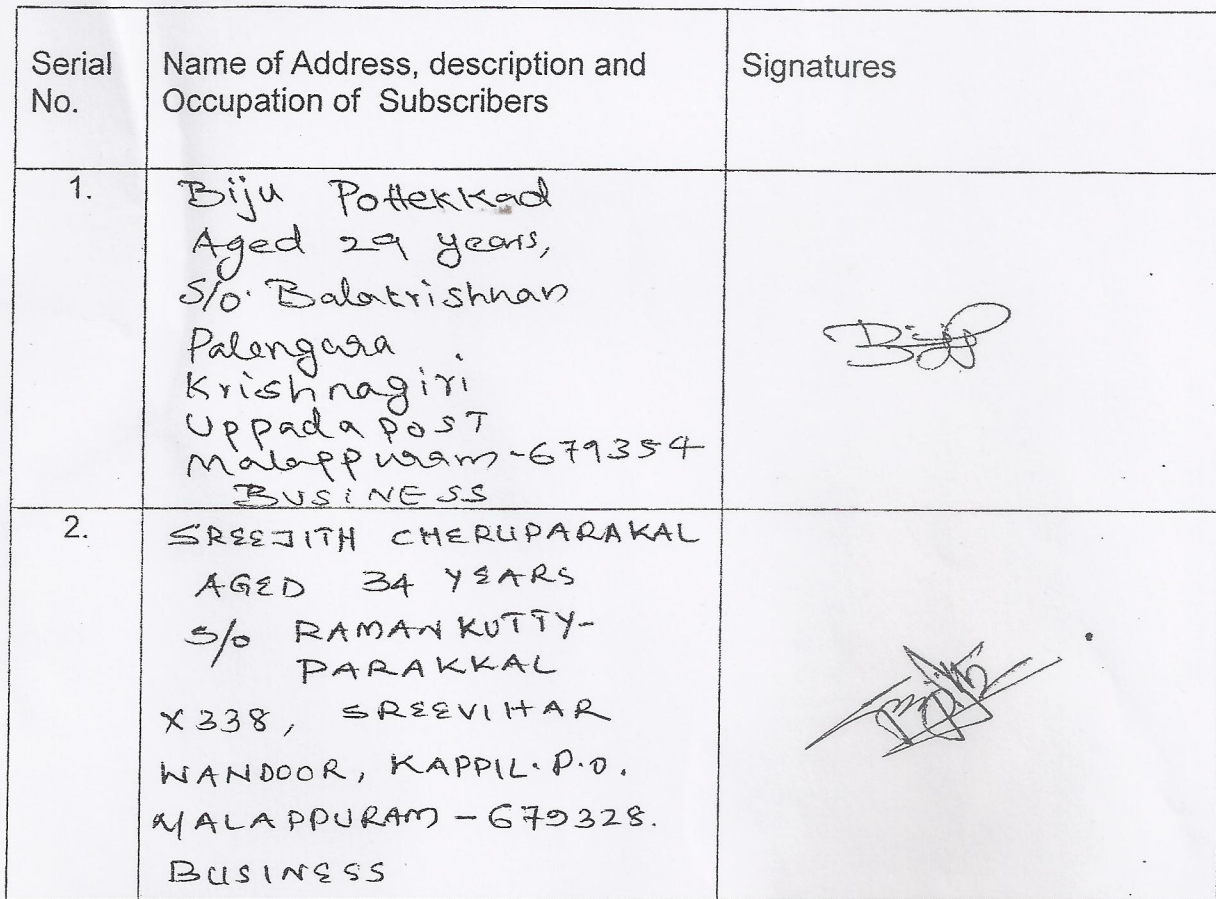 Serial No.
Name of Address, description and
Occupation of Subscribers
Signatures
1.
Biju Pottekkad
Aged 29 years,
S/o. Balakrishnan
Palengara
Krishnagiri
Uppada post
Malappuram-679354
BUSINESS
2.
SREEJITH CHERUPARAKAL
AGED 34 YEARS
S/o RAMAN KUTTY-
PARAKKAL
X338, SREEVIHAR
WANDOOR, KAPPIL.P.O.
MALAPPURAM - 679328.
BUSINESS